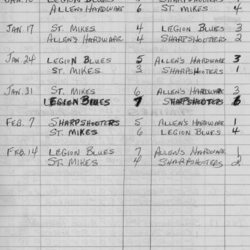 ALLEN'S HARDWARE 6 ST. MIKES 4
JAN 17 ST. MIKES 4 LEGION BLUES 3
ALLEN'S HARDWARE 4 SHARPSHOOTERS 2
JAN 24 LEGION BLUES 5 ALLEN'S HARDWARE 3
ST. MIKES 3 SHARPSHOOTERS 1
JAN 31 ST. MIKES 6 ALLEN'S HARDWARE 3
LEGION BLUES 7 SHARPSHOOTERS 6
FEB. 7 SHARPSHOOTERS 5 ALLEN'S HARDWARE 1
ST. MIKES 6 LEGION BLUES 4
FEB. 14 LEGION BLUES 7 ALLEN'S HARDWARE 1
ST. MIKES 4 SHARPSHOOTERS 2